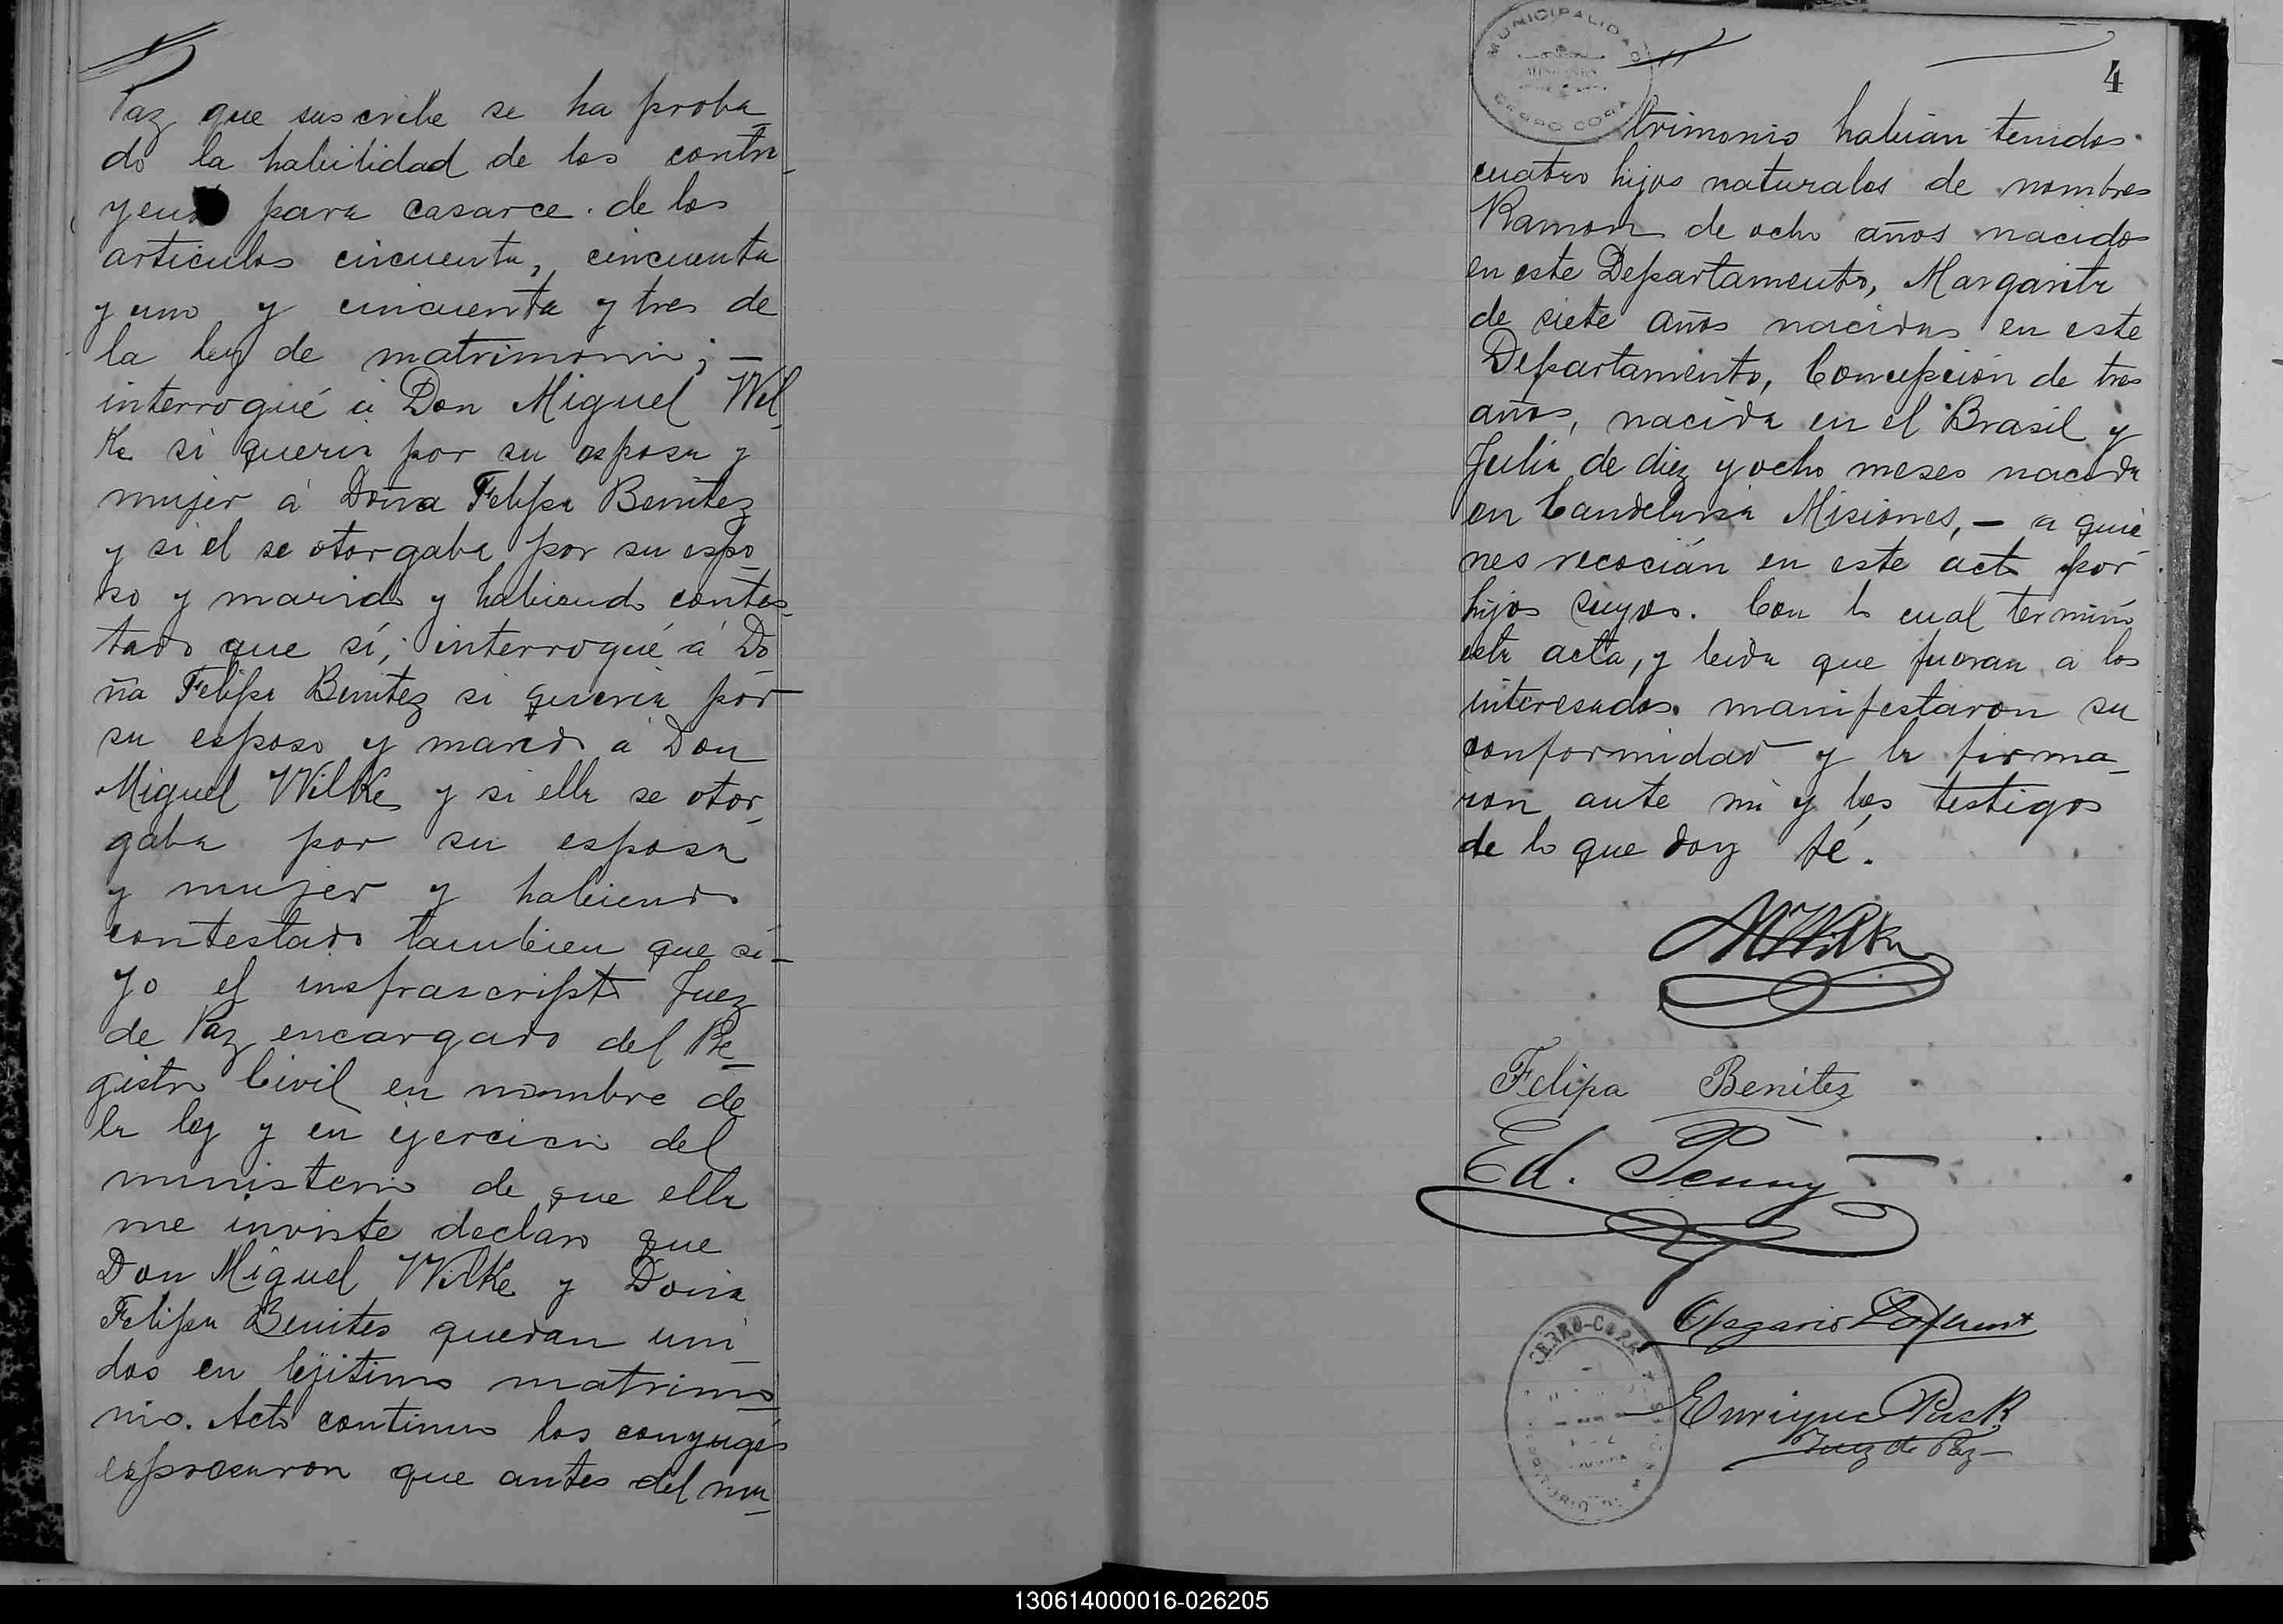 Paz que suscribe se ha proba_
do la habilidad de los contra_
yen para casarce. de los
articulos cincuenta, cincuenta
y uno y cincuenta y tres de
la ley de matrimonio; —
interrogué á Don Miguel Wil_
Ke si queria por su esposa y
mujer á Doña Felipa Benitez
y si el se otorgaba por su espo_
so y marido y habiendo contes_
tado que sí; interrogué á Do_
ña Felipa Benitez si queria por
su esposo y marido a Don
Miguel Wilke y si ella se otor_
gaba por su esposa
y mujer y habiendo
contestado tambien que si —
Yo el insfrascripto Juez
de Paz encargado del Re_
gistro Civil en nombre de
la ley y en ejercicio del
ministerio de que ella
me inviste declaro que
Don Miguel Wilke y Doña
Felipa Benites quedan uni_
dos en lejitimo matrimo_
nio. Acto continuo los conyuges
espresaron que antes del ma_
MUNICIPALIDAD
CERRO CORA
4
trimonio habian tenidos
cuatro hijos naturales de nombres
Ramon de ocho años nacido
en este Departamento, Margarita
de siete años nacidas en este
Departamento, Concepción de tres
años, nacida en el Brasil y
Julia de diez y ocho meses nacida
en Candelaria Misiones, — a quie
nes recocián en este acto por
hijos suyos. Con lo cual terminó
esta acta, y leida que fueran a los
interesados manifestaron su
conformidad y la firma_
ron ante mi y los testigos
de lo que doy fé.
M Wilke
Felipa Benites
Ed. Penny
Enrique Puck
Juez de Paz
CERRO-CORA
130614000016-026205